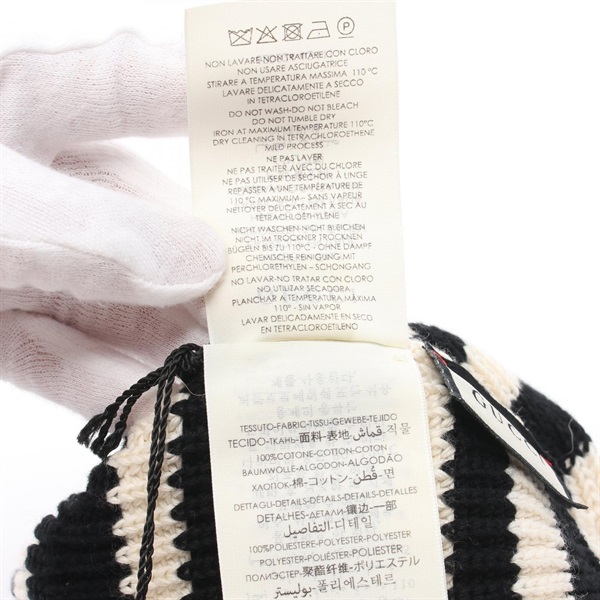 NON LAVARE-NON TRATTARE CON CLORO
NON USARE ASCIUGATRICE
STIRARE A TEMPERATURA MASSIMA 110°C
LAVARE DELICATAMENTE A SECCO
IN TETRACLOROETILENE
DO NOT WASH-DO NOT BLEACH
DO NOT TUMBLE DRY
IRON AT MAXIMUM TEMPERATURE 110°C
DRY CLEANING IN TETRACHLOROETHENE
MILD PROCESS
NE PAS LAVER
NE PAS TRAITER AVEC DU CHLORE
NE PAS UTILISER DE SECHOIR À LINGE
REPASSER A UNE TEMPÉRATURE DE
110°C MAXIMUM – SANS VAPEUR
NETTOYER DÉLICATEMENT À SEC AU
TÉTRACHLOROÉTHYLÈNE
NICHT WASCHEN-NICHT BLEICHEN
NICHT IM TROCKNER TROCKNEN
BÜGELN BIS ZU 110°C - OHNE DAMPF
CHEMISCHE REINIGUNG MIT
PERCHLORETHYLEN - SCHONGANG
NO LAVAR-NO TRATAR CON CLORO
NO UTILIZAR SECADORA
PLANCHAR A TEMPERATURA MÁXIMA
110° - SIN VAPOR
LAVAR DELICADAMENTE EN SECO
EN TETRACLOROETILENO
TESSUTO-FABRIC-TISSU-GEWEBE-TEJIDO
TECIDO-ТКАНЬ-面料-表地-قماش-직물
100%COTONE-COTTON-COTON
BAUMWOLLE-ALGODON-ALGODÃO
ХЛОПОК-棉-コットン-قطن-면
DETTAGLI-DETAILS-DÉTAILS-DETAILS-DETALLES
DETALHES-ДЕТАЛИ-镶边-一部
디테일-التفاصيل
100%POLIESTERE-POLYESTER-POLYESTER
POLYESTER-POLIÉSTER-POLIESTER
ПОЛИЭСТЕР-聚酯纤维-ポリエステル
폴리에스테르-بوليستر
GUCCI